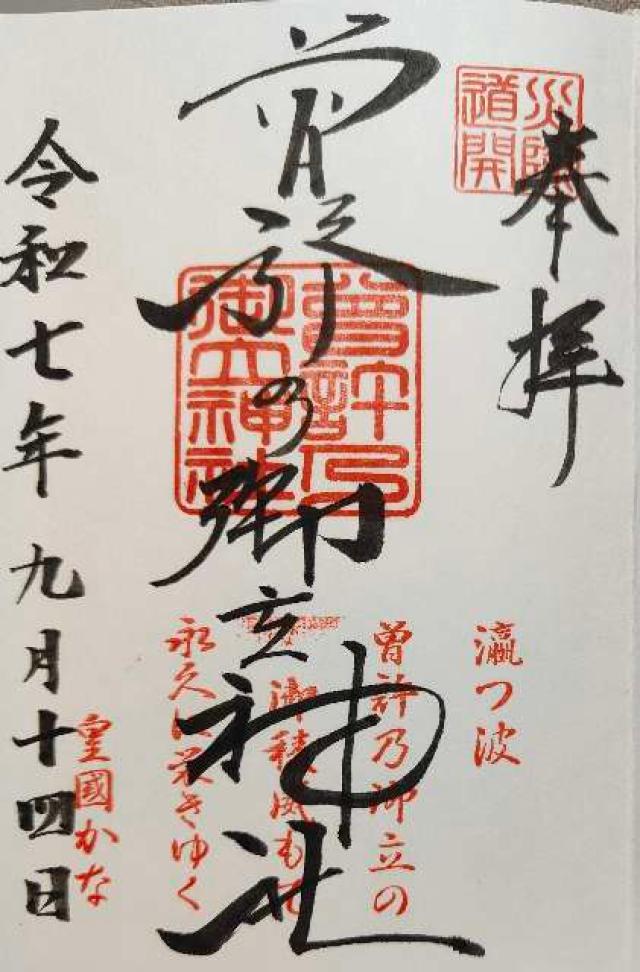 奉拝
災除
道開
曽許乃御立神社
曽許乃
御立神社
瀛つ波
曽許乃御立の
御稜威もて
永久に栄きゆく
皇國かな
令和七年九月十四日